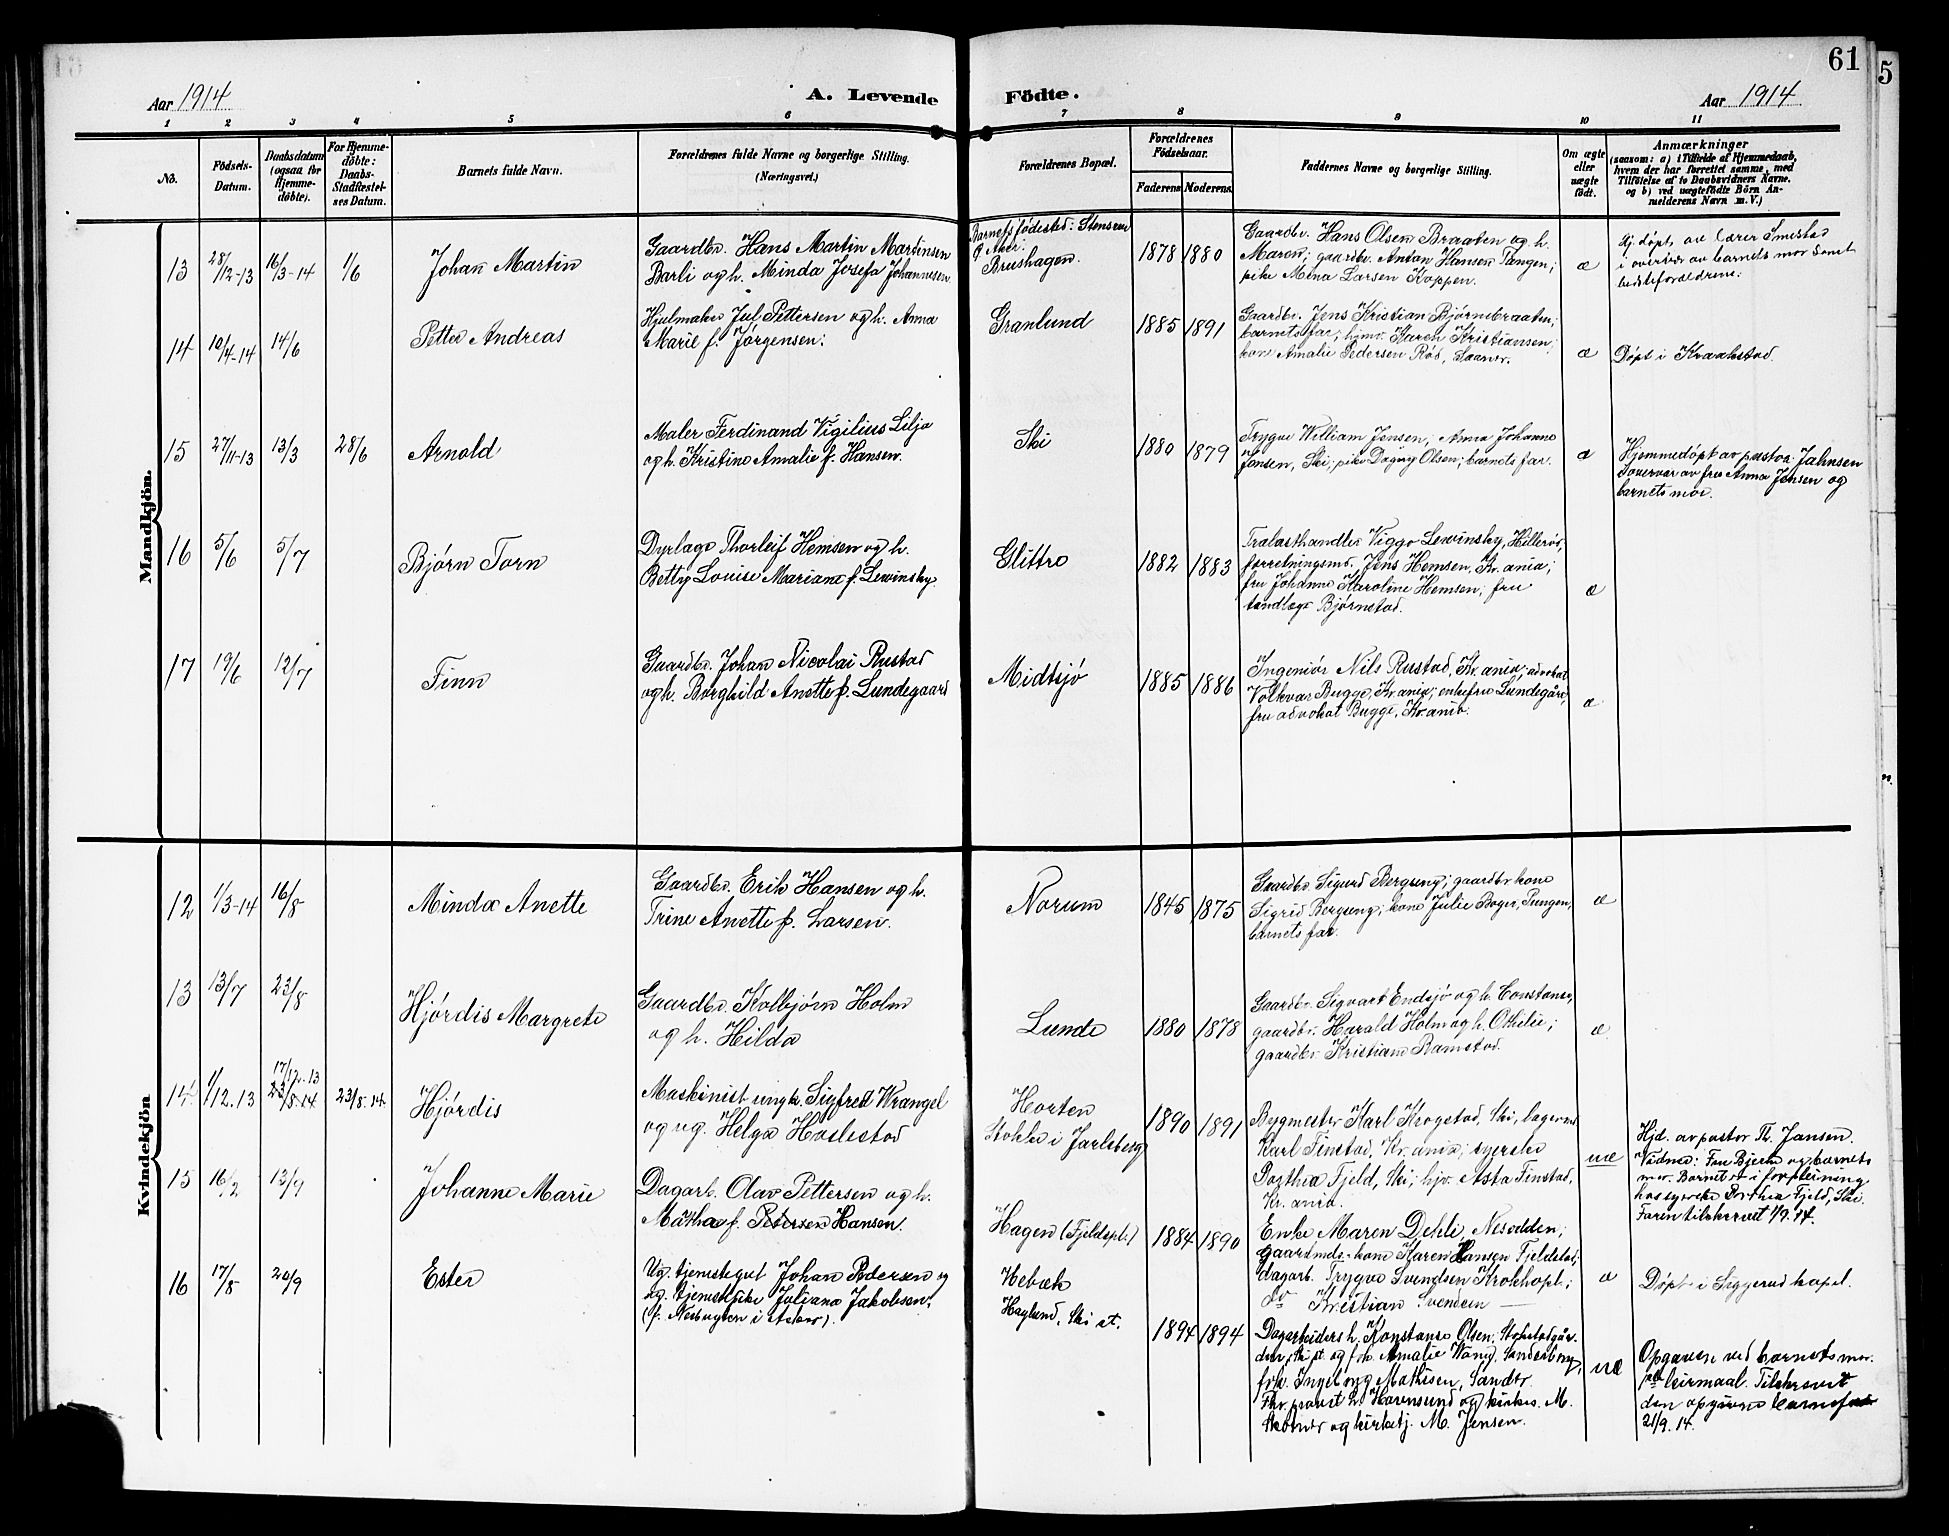 61
5
Aar 1914
A. Levende
Födte.
Aar 1914
1 2 3 4 5 6 7 8 9 10 11
No.
Födsels-
Datum.
Daabsdatum
(ogsaa for
Hjemme-
döbte).
For Hjemme-
döbte:
Daabs-
Stadfæstel-
ses Datum.
Barnets fulde Navn.
Forældrenes fulde Navne og borgerlige Stilling.
(Næringsvei.)
Forældrenes Bopæl.
Forældrenes
Födselsaar.
Faderens Moderens
Faddernes Navne og borgerlige Stilling.
Om ægte
eller
uægte
født.
Anmærkninger
(saasom: a) i Tilfælde af Hjemmedaab,
hvem der har forrettet samme, med
Tilføielse af to Daabsvidners Navne.
og b) ved uægtefødte Börn An-
melderens Navn m. V.)
Mandkjön.
13
28/12-13
16/3-14
1/6
Johan Martin
Gaardbr. Hans Martin Martinsen
Barli og h. Minda Josefa Johannesen
Barnets fødested: Stensrud
Brushagen.
1878 1880
Gaardbr. Hans Olsen Braaten og h.
Maren; gaardbr. Anton Hansen Tangen;
pike Mina Larsen Koppen.
æ
Hj. døpt av lærer Smestad
i overvær av barnets mor samt
bedsteforældrene.
14
10/4-14
14/6
Petter Andreas
Hjulmaker Jul Pettersen og h. Anna
Marie f. Jørgensen.
Granlund
1885 1891
Gaardbr. Jens Kristian Bjørnebraaten;
barnets far; hjmv. Karen Kristiansen;
Amalie Pedersen Rød, Saaner.
æ
Døpt i Kraakstad.
15
27/11-13
13/3
28/6
Arnold
Maler Ferdinand Vigilius Lilja
og h. Kristine Amalie f. Hansen.
Ski
1880 1879
Trygve William Jensen, Anna Johanne
Jensen, Ski; pike Dagny Olsen; barnets far.
æ
Hjemmedøpt av pastor Jahnsen
i overvær av fru Anna Jensen og
barnets mor.
16
5/6
5/7
Bjørn Torn
Dyrlæge Thorleif Hemsen og h.
Betty Louise Mariane f. Lewinsky.
Glittre
1882 1883
Trælasthandler Viggo Lewinsky, Hillerød;
forretningsmd. Jens Hemsen, Kr.ania;
fru Johanne Karoline Hemsen; fru
tandlæge Bjørnstad.
æ
17
19/6
12/7
Finn
Gaardbr. Johan Nicolai Rustad
og h. Borghild Anette f. Lundegaard
Midtsjø
1885 1886
Ingeniør Nils Rustad, Kr.ania; advokat
Volkvar Bugge, Kr.ania; enkefru Lundegård,
fru advokat Bugge, Kr.ania.
æ
Kvindekjön
12
1/3-14
16/8
Minda Anette
Gaardbr. Erik Hansen og h.
Trine Anette f. Larsen.
Norum
1845 1875
Gaardbr. Sigurd Bergseng; gaardbr.kone
Sigrid Bergseng; kone Julie Boger, Tungen,
barnets far.
æ
13
13/7
23/8
Hjørdis Margrete
Gaardbr. Kolbjørn Holm
og h. Hilda
Lunde
1880 1878
Gaardbr. Sigvart Endsjø og h. Constanse,
gaardbr. Harald Holm og h. Othilie;
gaardbr. Kristian Ramstad.
æ
14
1/12.13
17/12.13
23/8.14
23/8.14
Hjørdis
Maskinist ungk. Sigfred Wrangel
og ug. Helga Haslestad
Horten
Stokke i Jarlsberg
1890 1891
Bygmester Karl Krogstad, Ski, lagermd.
Karl Finstad, Kr.ania; syerske
Porthea Fjeld, Ski; hjv. Asta Finstad,
Kr.ania.
uæ
Hjd. av pastor Th. Jansen.
Vidner: Fru Bjerke og barnets
mor. Barnet er i forpleining
hos syerske Porthea Fjeld, Ski
Faren tilskrevet 1/9.14.
15
16/2
13/9
Johanne Marie
Dagarb. Olav Pettersen og h.
Mathea f. Petersen Hansen.
Hagen (Fjeldspl.)
1884 1890
Enke Maren Dehli, Nesodden;
gaardmds.kone Karen Hansen Fjeldstad;
dagarb. Trygve Svendsen Krokhopl.;
do Kristian Svendsen —
æ
Døpt i Siggerud kapel.
16
17/8
20/9
Ester
Ug. tjenestegut Johan Pedersen og
ug. tjenestepike Juliane Jakobsen.
(f. Nesbugten i Asker).
Hebæk
Haglund, Ski st.
1894 1894
Dagarbeiders h. Konstanse Olsen,
den, Ski st. og frk. Amalie Wang,
frk. Ingeborg Mathisen, Sander.
Fhv. provst h. Havensund og kirkes. M.
Skotner og kirketj. M. Jensen.
uæ
Opgaven ved barnets mor.
Tilskrevet
den opgivne barnefar
21/9.14.